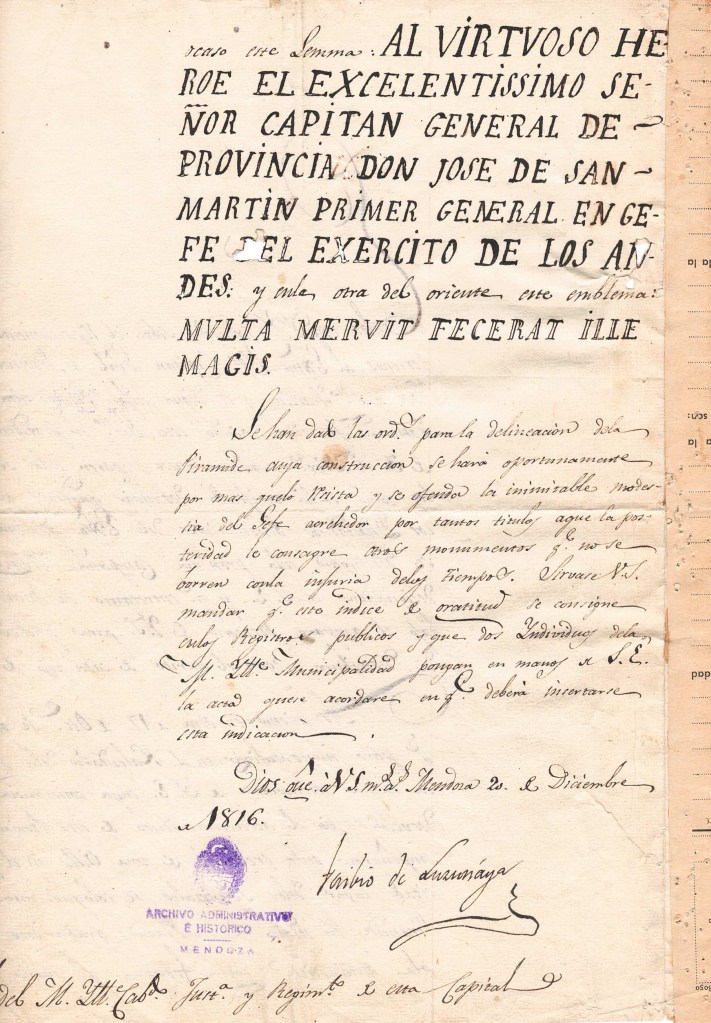 ocaso este Lemma: AL VIRTVOSO HE
ROE EL EXCELENTISSIMO SE-
ÑOR CAPITAN GENERAL DE
PROVINCIA DON JOSE DE SAN
MARTIN PRIMER GENERAL EN GE-
FE DEL EXERCITO DE LOS AN-
DES: y enla otra del oriente este emblema:
MVLTA MERVIT FECERAT ILLE
MAGIS.
Se han dado las ord.s para la delineacion dela
Piramide cuya construccion se hará oportunamente
por mas quelo resista y se ofenda la inimitable modes-
tia del Gefe acrehedor por tantos titulos aque la pos-
teridad le consagre otros monumentos q.e no se
borren conla injuria delos tiempos. Sirvase V.S.
mandar q.e este indice de gratitud se consigne
enlos Registros publicos y que dos Individuos dela
M. Ytt.e Municipalidad pongan en manos de S.E.
la acta quese acordare en q.e deberá insertarse
esta indicacion.
Dios gũe. à V.S. m.s a.s Mendoza 20. de Diciembre
de 1816.
Toribio de Luzuriaga
ARCHIVO ADMINISTRATIVO
E HISTORICO
MENDOZA
del M. Ytt.e Cab.do Just.a y Regim.to de esta Capital